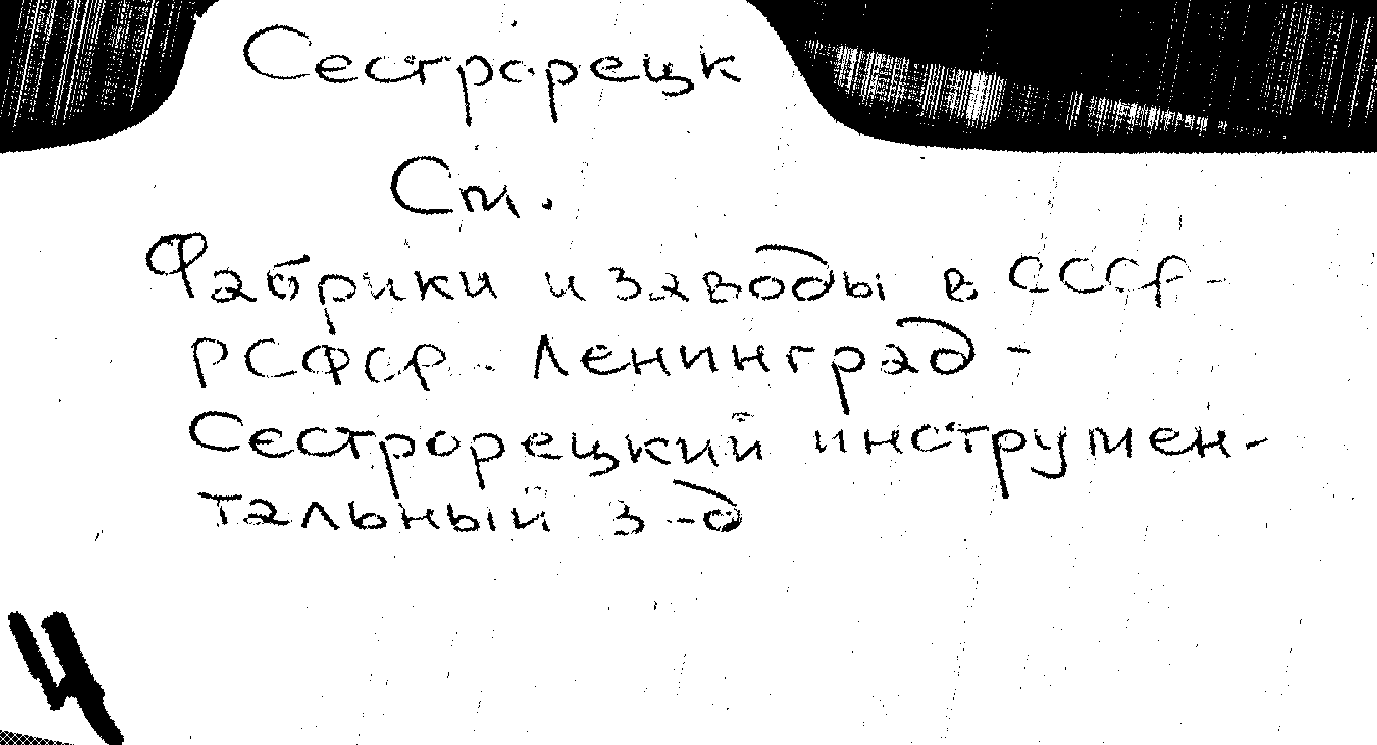 Сестрорецк
См.
Фабрики и заводы в СССР-
РСФСР. Ленинград -
Сестрорецкий инструмен-
тальный з-д
4